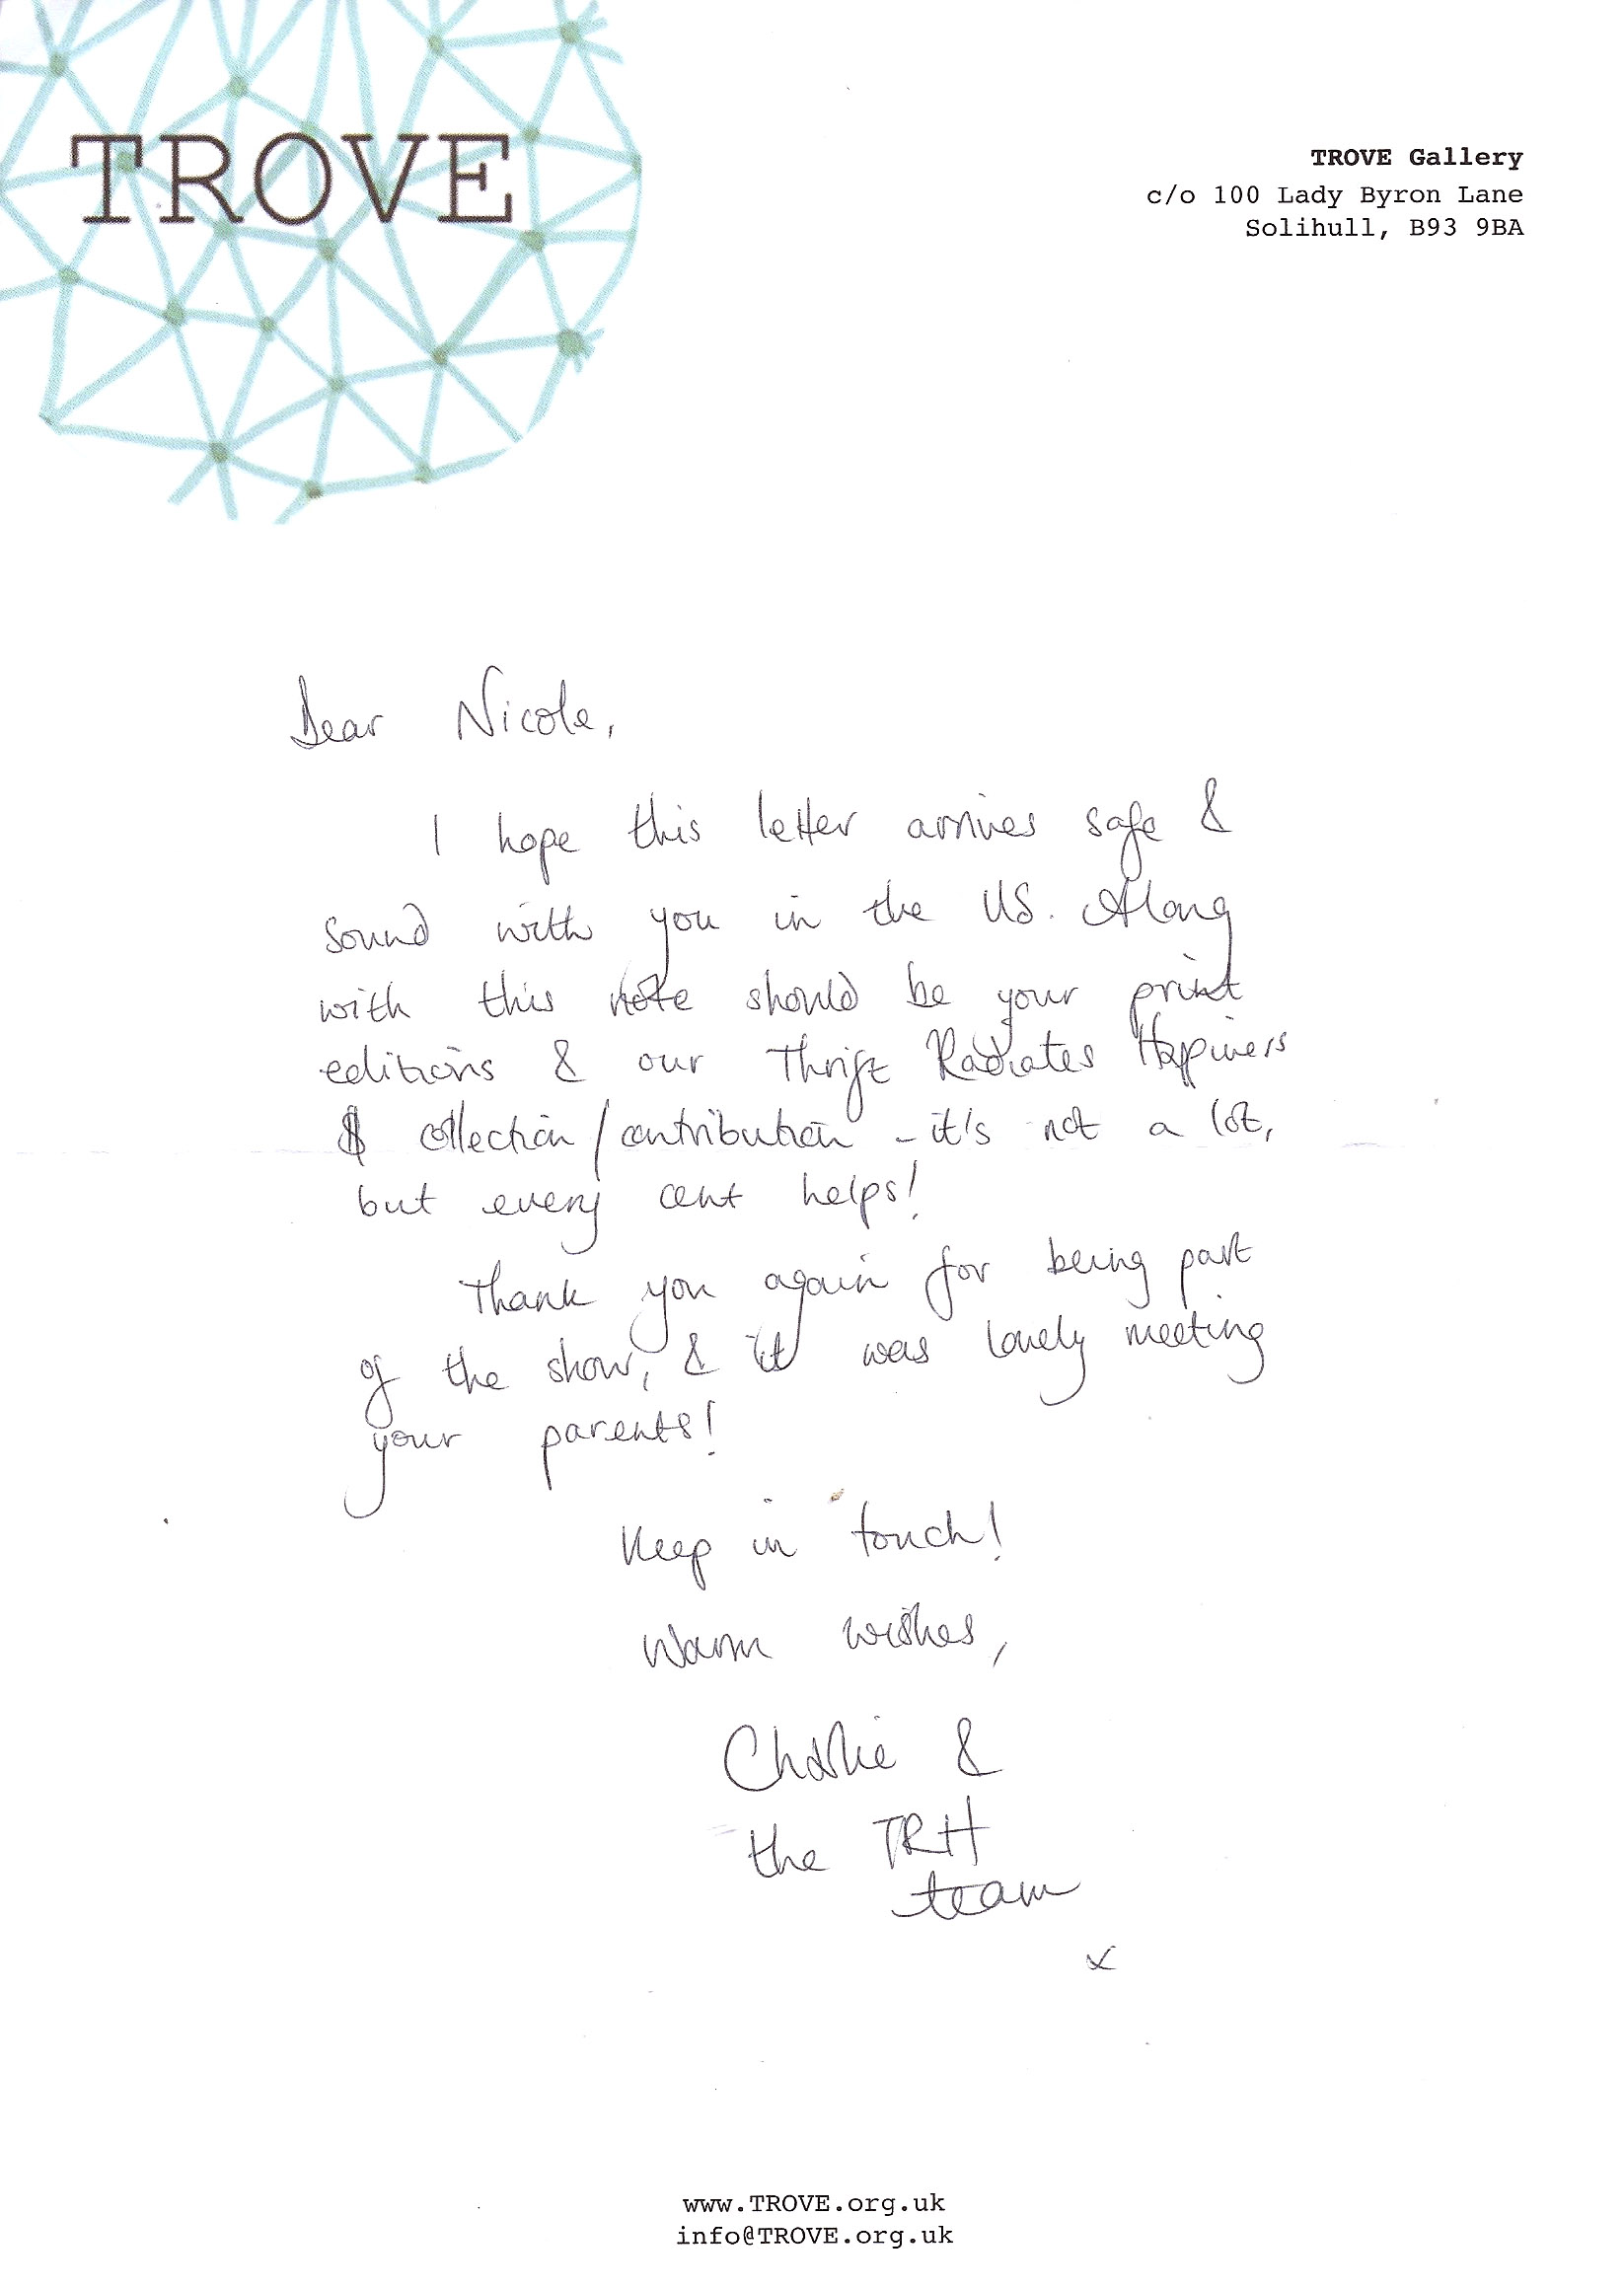 TROVE
TROVE Gallery
c/o 100 Lady Byron Lane
Solihull, B93 9BA
Dear Nicole,
I hope this letter arrives safe &
sound with you in the US. Along
with this note should be your print
editions & our Thrift Radiates Happiness
$ collection/contribution - it's not a lot,
but every cent helps!
Thank you again for being part
of the show, & it was lovely meeting
your parents!
Keep in touch!
Warm wishes,
Charlie &
the TRH
team
x
www.TROVE.org.uk
info@TROVE.org.uk